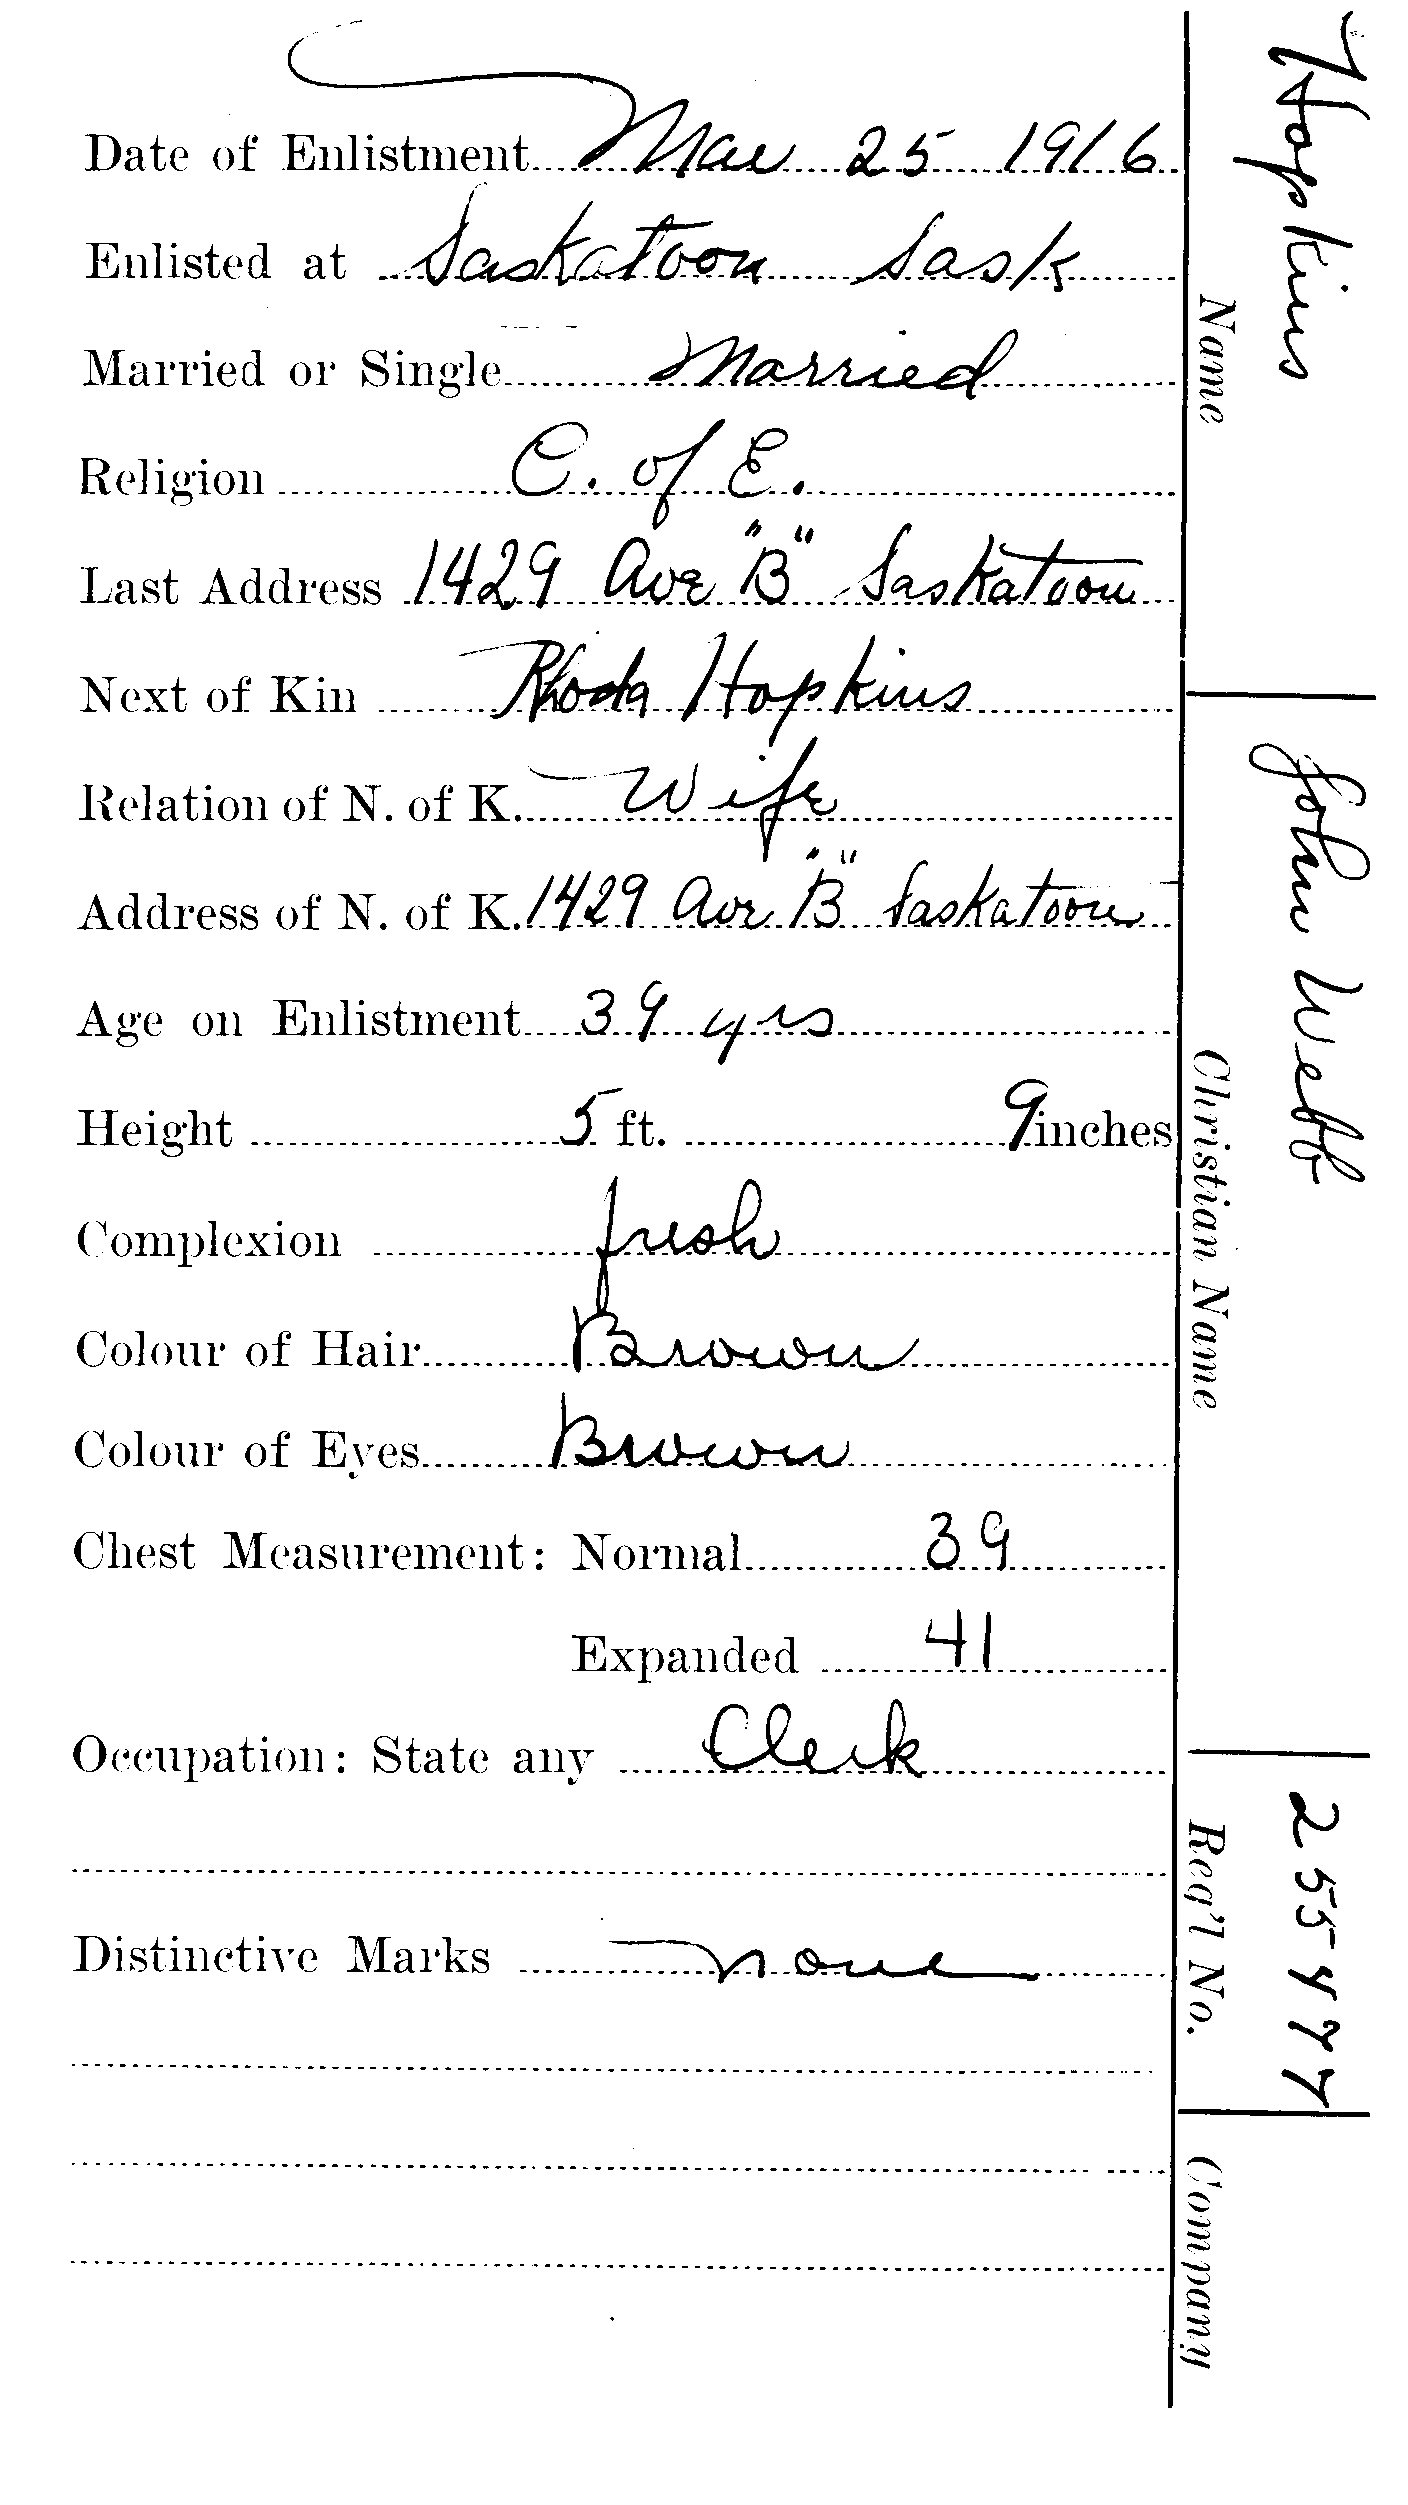 Date of Enlistment Mar 25 1916
Enlisted at Saskatoon Sask
Married or Single Married
Religion C. of E.
Last Address 1429 Ave "B" Saskatoon
Next of Kin Rhoda Hopkins
Relation of N. of K. Wife
Address of N. of K. 1429 Ave "B" Saskatoon
Age on Enlistment 39 yrs
Height 5 ft. 9 inches
Complexion fresh
Colour of Hair Brown
Colour of Eyes Brown
Chest Measurement: Normal 39
Expanded 41
Occupation: State any Clerk
Distinctive Marks none
Hopkins John Webb 255477
Name Christian Name Reg'l No. Company